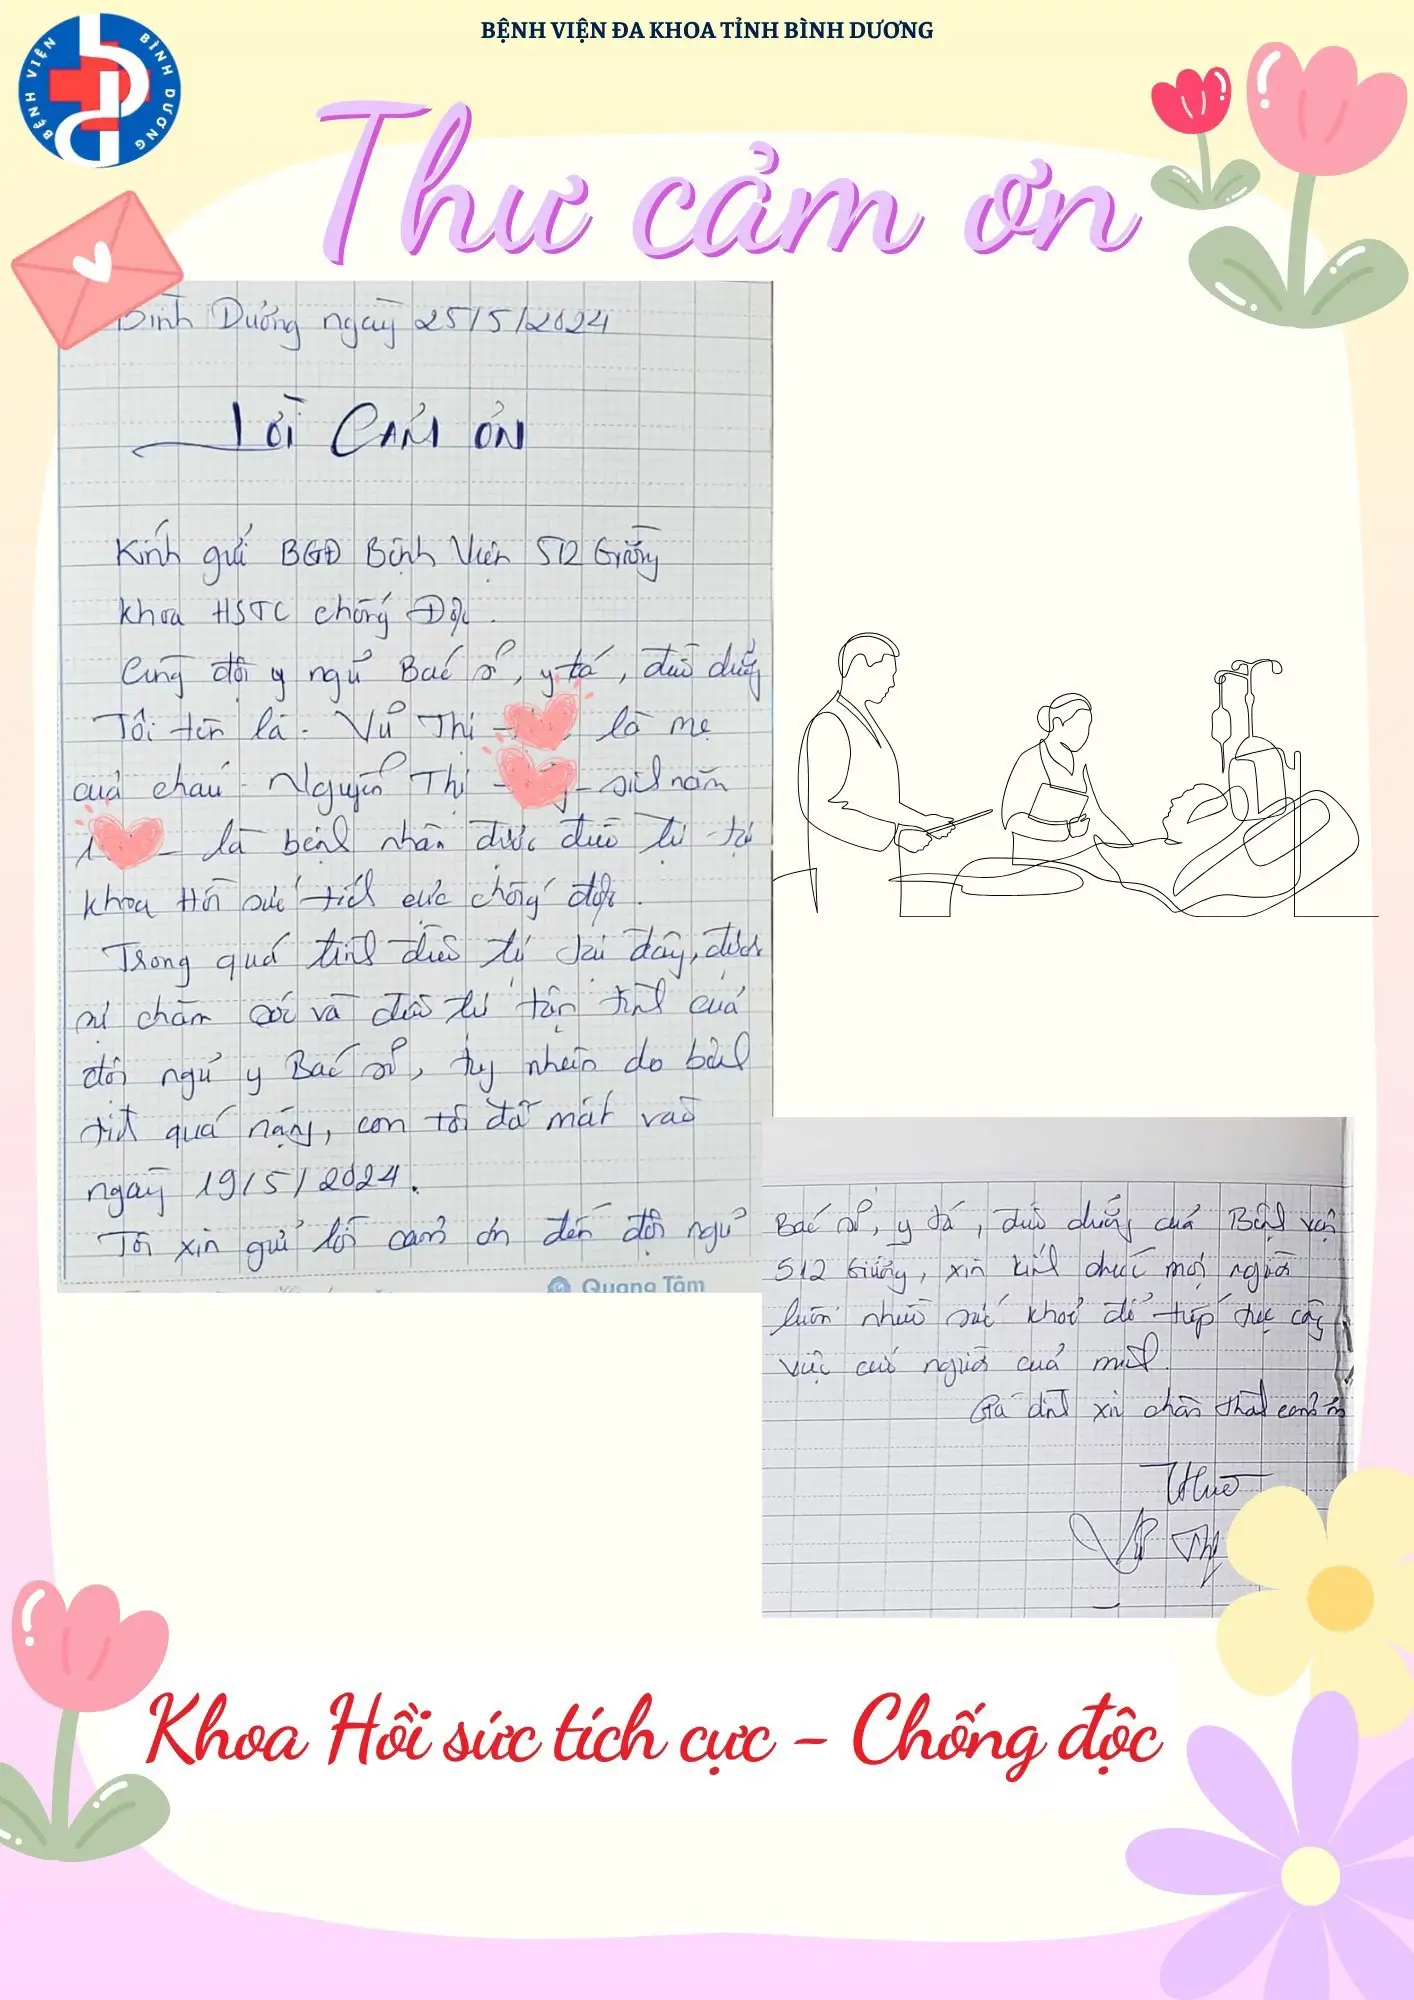 BỆNH VIỆN ĐA KHOA TỈNH BÌNH DƯƠNG
BỆNH VIỆN BÌNH DƯƠNG
Thư cảm ơn
Bình Dương ngày 25/5/2024
LỜI CẢM ƠN
Kính gửi BGĐ Bệnh Viện 512 Giường
Khoa HSTC chống Độc.
Cùng đội y ngủ Bác sỉ, y tá, điều dưỡng
Tôi tên là: Vũ Thị là mẹ
của cháu: Nguyễn Thị sinh năm
1 là bệnh nhân được điều trị tại
khoa Hồi sức tích cực chống độc.
Trong quá trình điều trị tại đây, được
sự chăm sóc và điều trị tận tình của
đội ngủ y Bác sỉ, tuy nhiên do bệnh
tình quá nặng, con tôi đã mất vào
ngày 19/5/2024.
Tôi xin gửi lời cảm ơn đến đội ngủ
Quang Tâm
Bác sỉ, y tá, điều dưỡng của Bệnh viện
512 Giường, xin kính chúc mọi người
luôn nhiều sức khoẻ để tiếp tục công
việc cứu người của mình.
Gia đình xin chân thành cảm ơn
Vũ Thị
Khoa Hồi sức tích cực - Chống độc